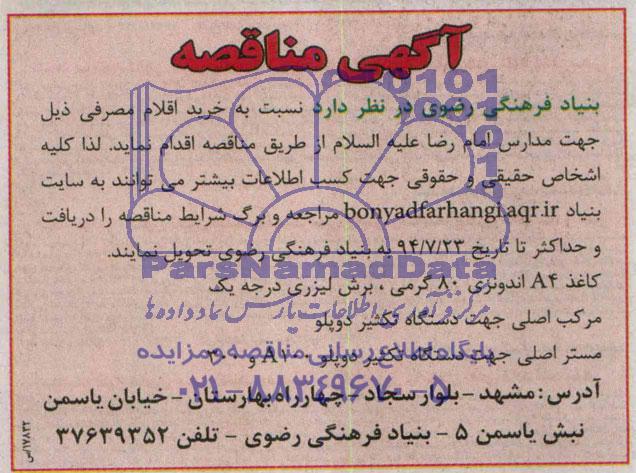 آگهی مناقصه
بنیاد فرهنگی رضوی در نظر دارد نسبت به خرید اقلام مصرفی ذیل
جهت مدارس امام رضا علیه السلام از طریق مناقصه اقدام نماید. لذا کلیه
اشخاص حقیقی و حقوقی جهت کسب اطلاعات بیشتر می توانند به سایت
بنیاد bonyadfarhangi.aqr.ir مراجعه و برگ شرایط مناقصه را دریافت
و حداکثر تا تاریخ ۹۴/۷/۲۳ به بنیاد فرهنگی رضوی تحویل نمایند.
ParsNamadData
کاغذ A۴ اندونزی ۸۰ گرمی ، برش لیزری درجه یک
مرکز فرآوری اطلاعات پارس نماد داده ها
مرکب اصلی جهت دستگاه تکثیر دوپلو
پایگاه اطلاع رسانی مناقصه و مزایده
مستر اصلی جهت دستگاه تکثیر دوپلو
۰۲۱-۸۸۳۴۹۶۷۰-۵
آدرس: مشهد - بلوار سجاد - چهارراه بهارستان - خیابان یاسمن
نبش یاسمن ۵ - بنیاد فرهنگی رضوی - تلفن ۳۷۶۳۹۳۵۲
۱۷۸۳۲/س